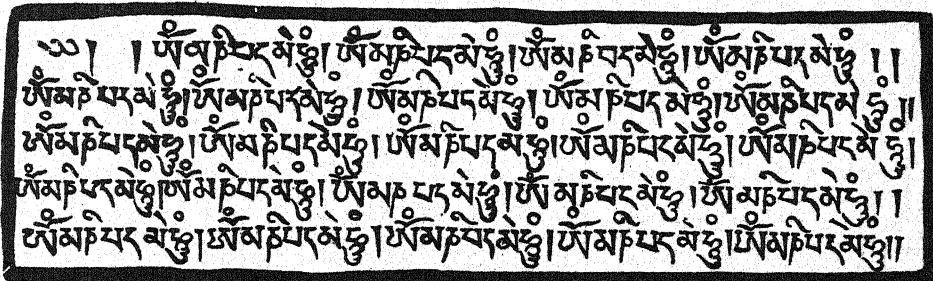 ༄། །ཨོཾམཎིཔདམེཧཱུྃ།ཨོཾམཎིཔདམེཧཱུྃ།ཨོཾམཎིཔདམེཧཱུྃ།ཨོཾམཎིཔདམེཧཱུྃ །།
ཨོཾམཎིཔདམེཧཱུྃ།ཨོཾམཎིཔདམེཧཱུྃ།ཨོཾམཎིཔདམེཧཱུྃ།ཨོཾམཎིཔདམེཧཱུྃ།ཨོཾམཎིཔདམེཧཱུྃ།།
ཨོཾམཎིཔདམེཧཱུྃ།ཨོཾམཎིཔདམེཧཱུྃ།ཨོཾམཎིཔདམེཧཱུྃ།ཨོཾམཎིཔདམེཧཱུྃ།ཨོཾམཎིཔདམེཧཱུྃ།
ཨོཾམཎིཔདམེཧཱུྃ།ཨོཾམཎིཔདམེཧཱུྃ།ཨོཾམཎིཔདམེཧཱུྃ།ཨོཾམཎིཔདམེཧཱུྃ།ཨོཾམཎིཔདམེཧཱུྃ།།
ཨོཾམཎིཔདམེཧཱུྃ།ཨོཾམཎིཔདམེཧཱུྃ།ཨོཾམཎིཔདམེཧཱུྃ།ཨོཾམཎིཔདམེཧཱུྃ།ཨོཾམཎིཔདམེཧཱུྃ།།